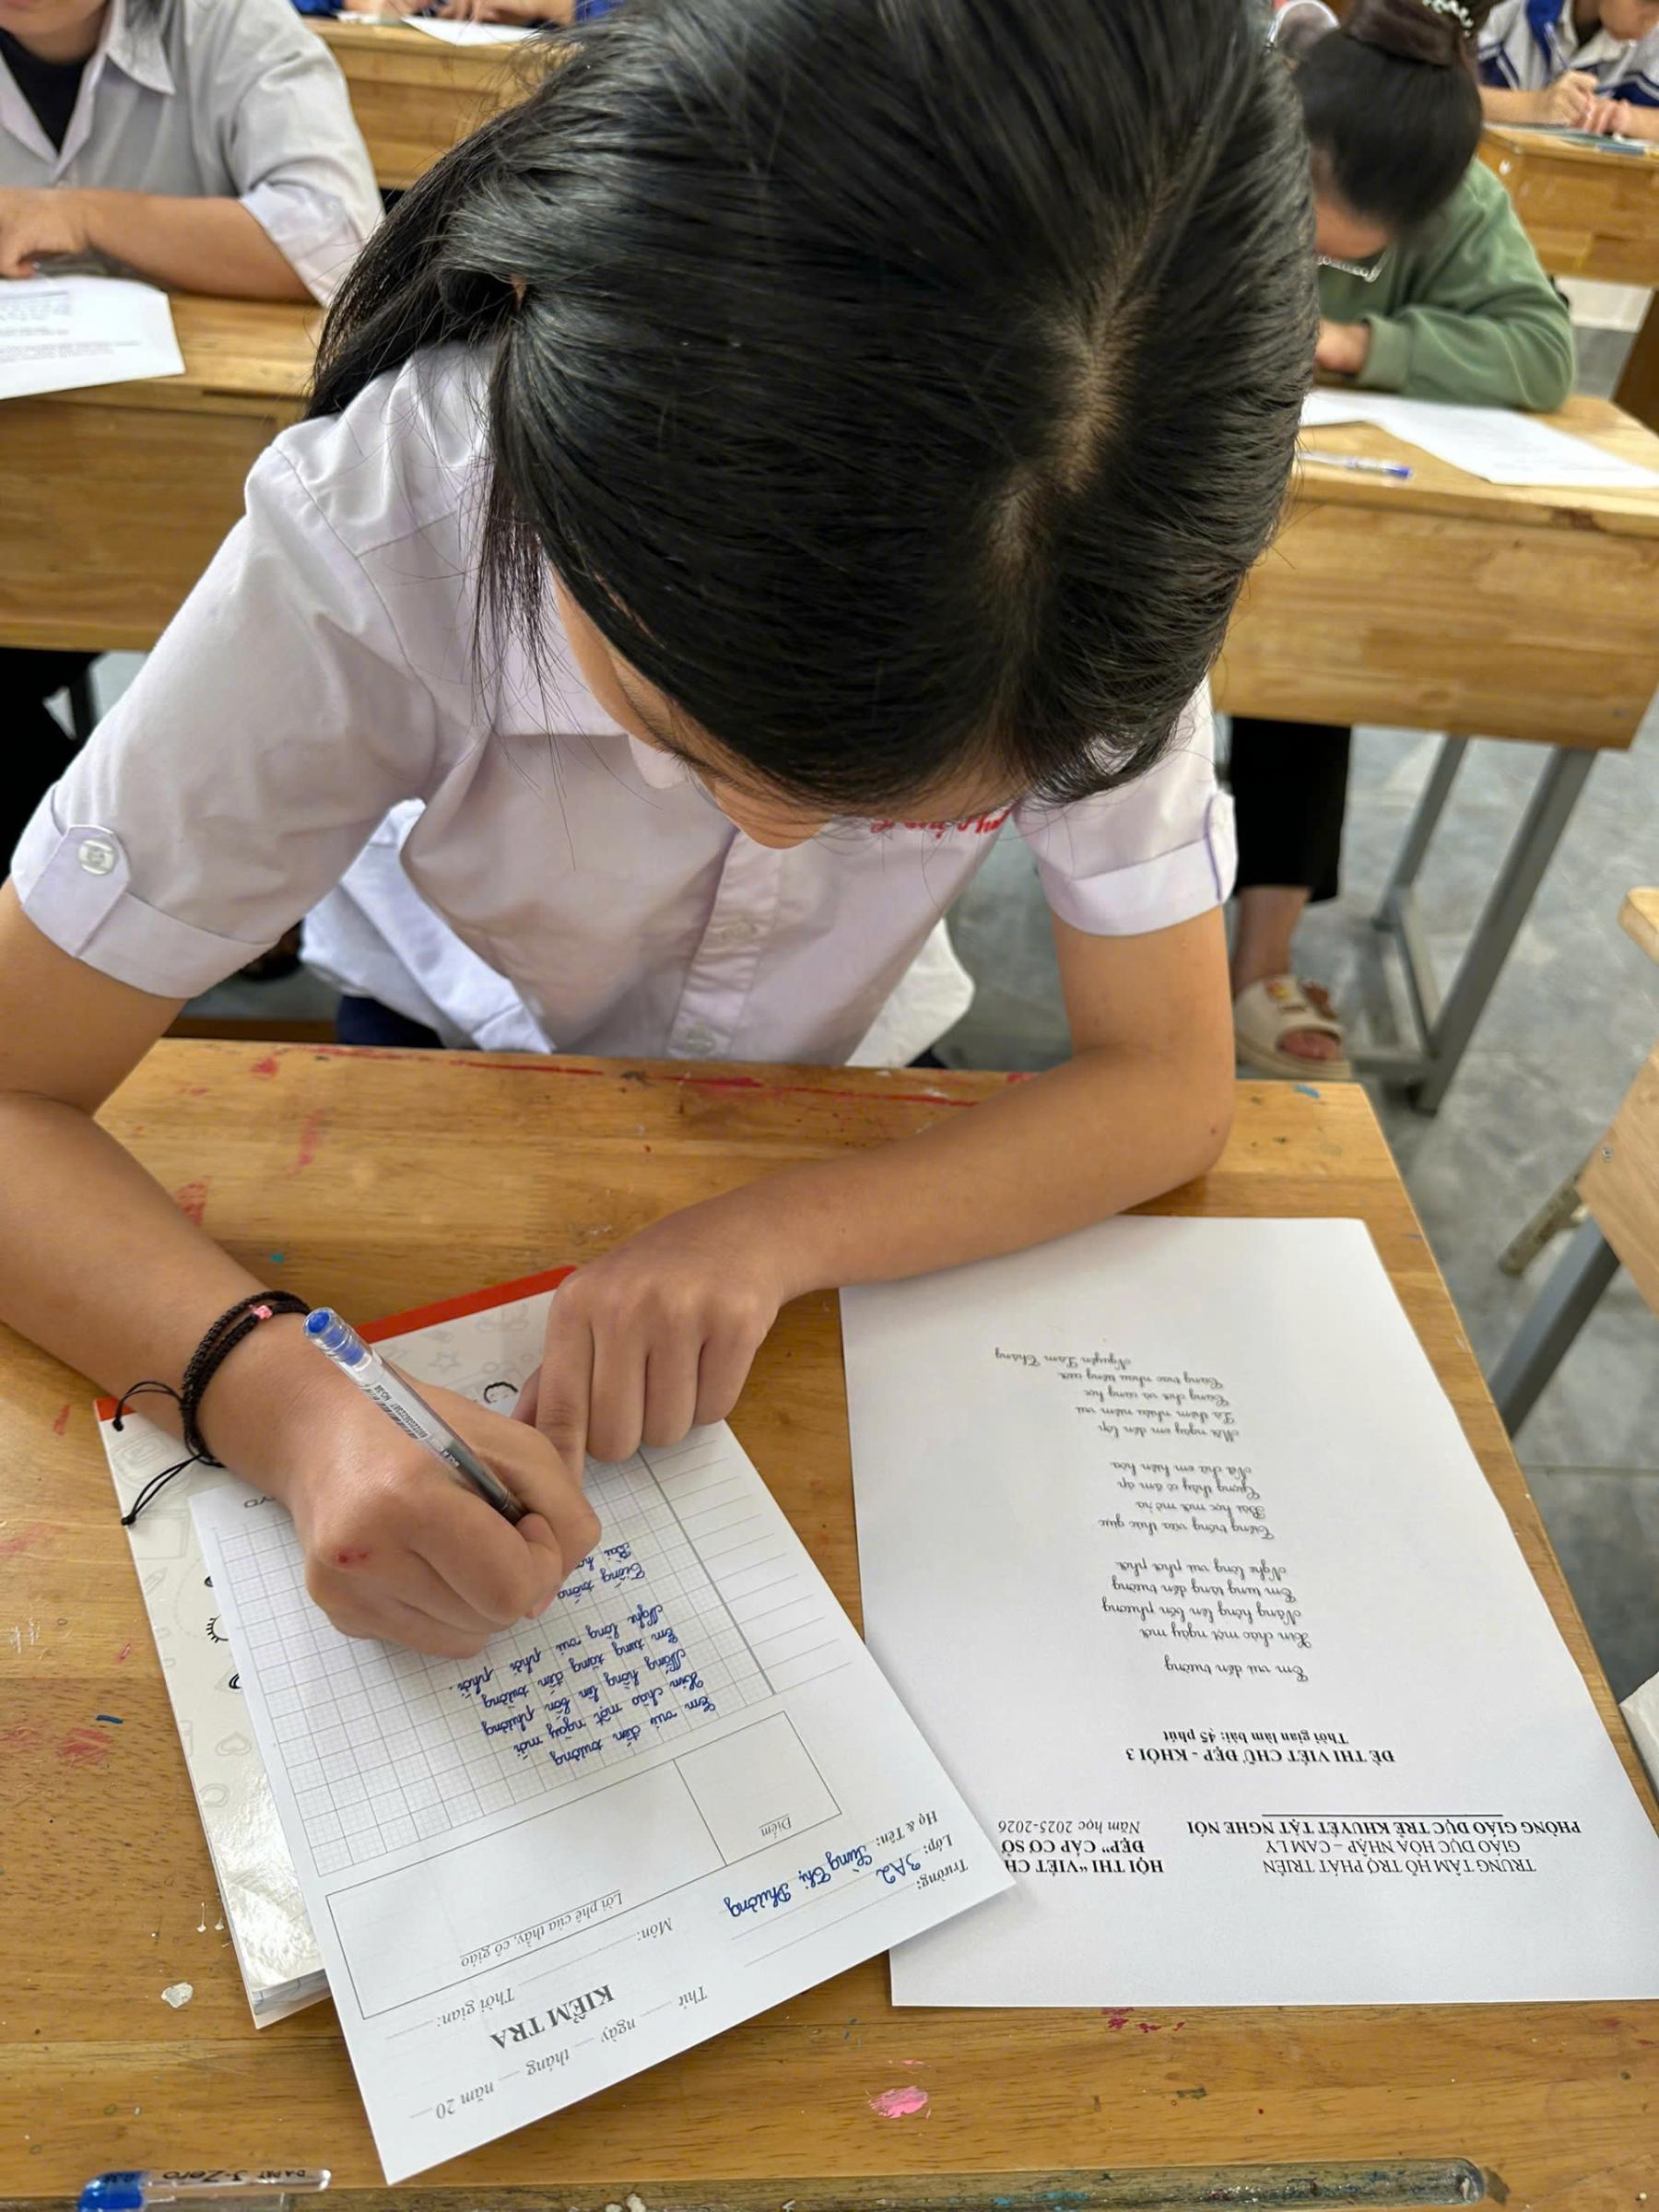 TRUNG TÂM HỖ TRỢ PHÁT TRIỂN
GIÁO DỤC HÒA NHẬP – CAM LY
PHÒNG GIÁO DỤC TRẺ KHUYẾT TẬT NGHE NÓI
HỘI THI “VIẾT CH
ĐẸP” CẤP CƠ SỞ
Năm học 2025-2026
ĐỀ THI VIẾT CHỮ ĐẸP - KHỐI 3
Thời gian làm bài: 45 phút
Em vui đến trường
Xin chào một ngày mới
Nắng hồng lên bốn phương
Em tung tăng đến trường
Nghe lòng vui phơi phới.
Tiếng trống vừa thúc giục
Bài học mới mở ra
Giọng thầy cô ấm áp
Nở chữ em hiền hòa.
Mỗi ngày em đến lớp
Là thêm nhiều niềm vui
Cùng chơi và cùng học
Cùng trao nhau tiếng cười.
Nguyễn Lãm Thắng
Thứ ngày tháng năm 20
KIỂM TRA
Môn: Thời gian:
Trường:
Lớp: 3A2
Họ & Tên: Lừng Thị Phường
Điểm
Lời phê của thầy, cô giáo
Em vui đến trường
Xin chào một ngày mới
Nắng hồng lên bốn phương
Em tung tăng đến trường
Nghe lòng vui phơi phới.
Tiếng trống
Bài họ